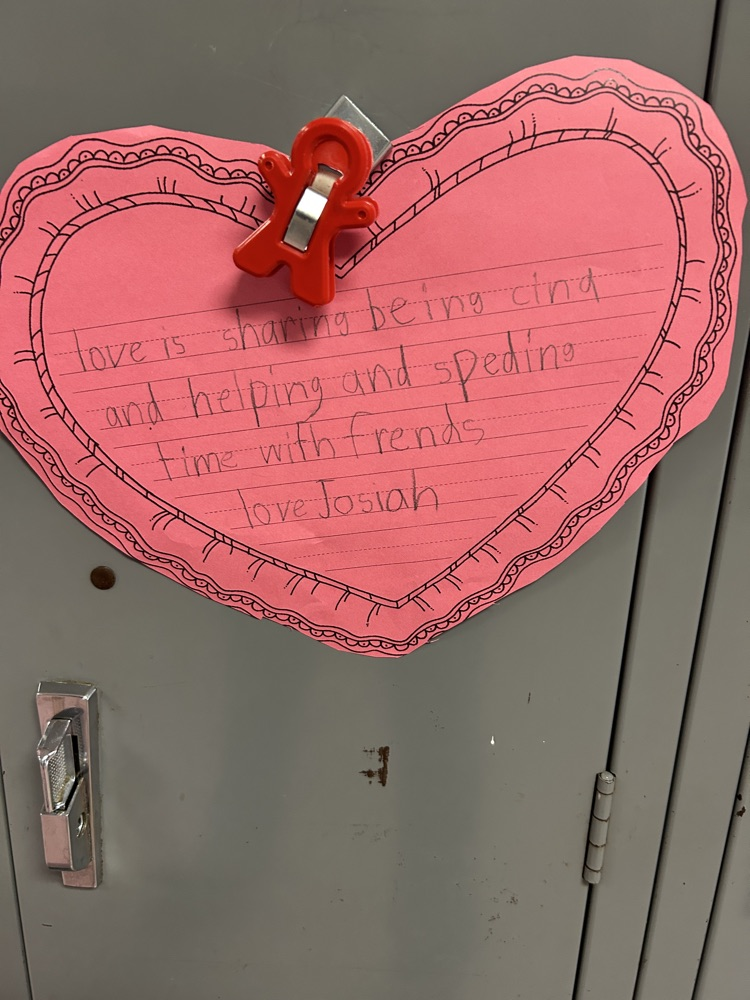 love is sharing being cind
and helping and speding
time with frends
love Josiah